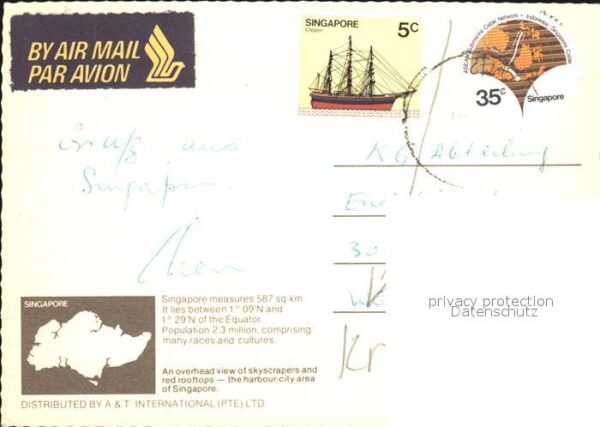 BY AIR MAIL
PAR AVION
SINGAPORE
Clipper
5c
ASEAN Submarine Cable Network • Indonesia-Singapore Cable
35c
Singapore
Gruß aus
Singapur
KG Abteilung
privacy protection
Datenschutz
SINGAPORE
Singapore measures 587 sq km.
It lies between 1° 09'N and
1° 29'N of the Equator.
Population 2.3 million, comprising
many races and cultures.
An overhead view of skyscrapers and
red rooftops — the harbour-city area
of Singapore.
DISTRIBUTED BY A & T INTERNATIONAL (PTE) LTD.